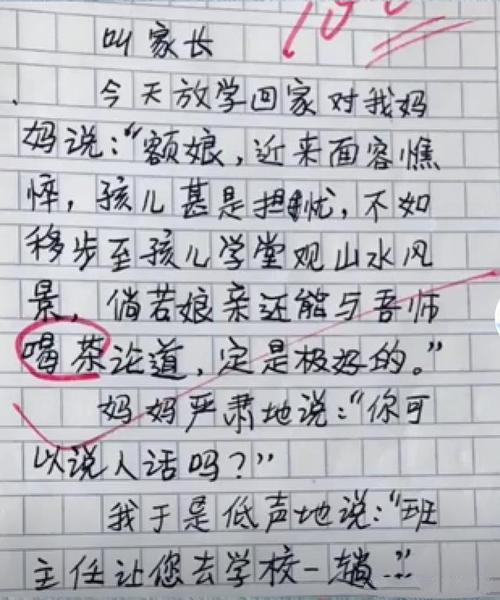 100
叫家长
今天放学回家对我妈
妈说：“额娘，近来面容憔
悴，孩儿甚是担忧，不如
移步至孩儿学堂观山水风
景，倘若娘亲还能与吾师
喝茶论道，定是极好的。”
妈妈严肃地说：“你可
以说人话吗？”
我于是低声地说：“班
主任让您去学校一趟…”